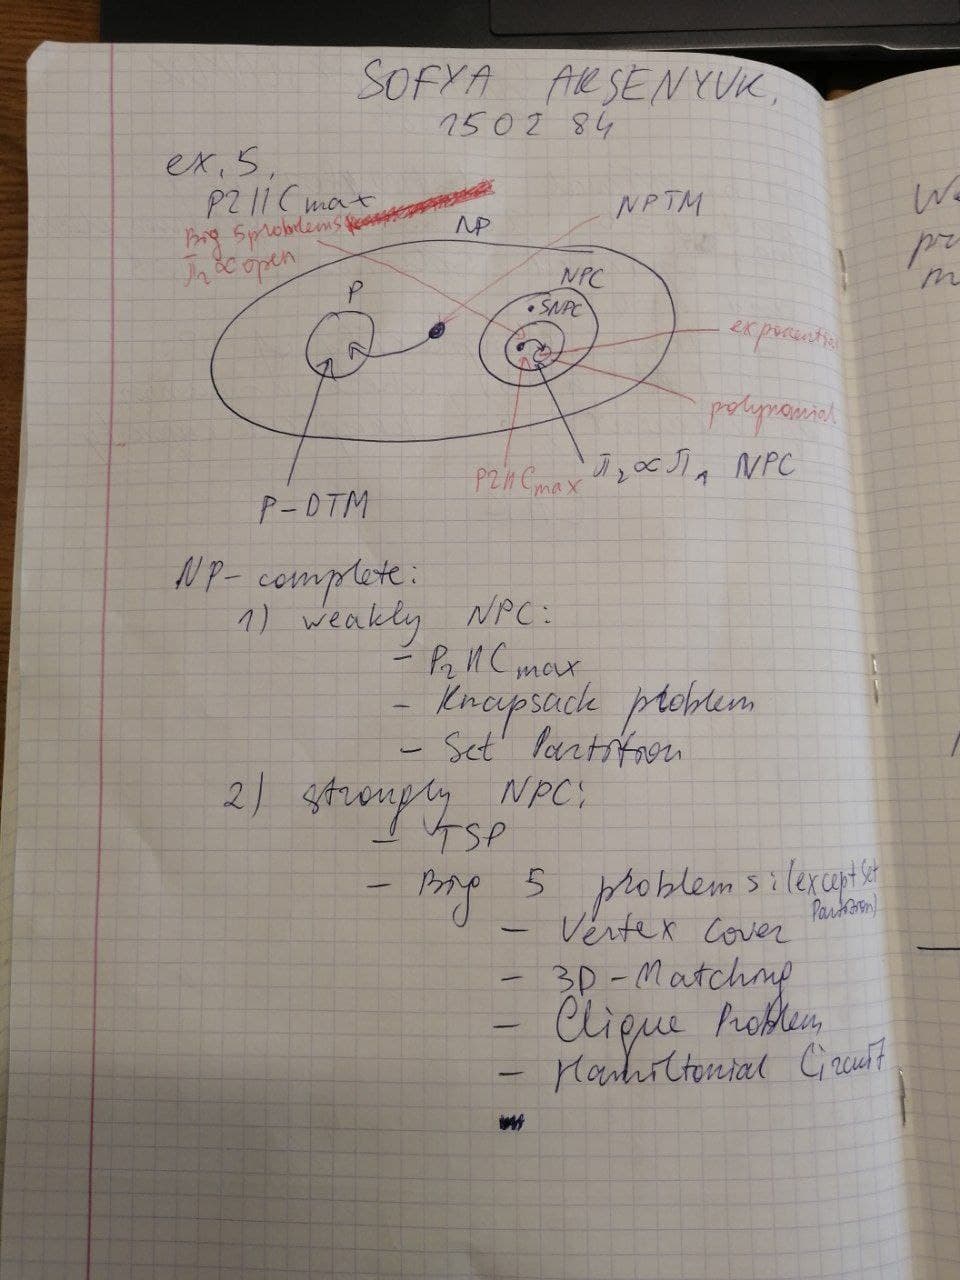 SOFYA ARSENYUK,
150284
ex. 5,
P2||Cmax
Big 5 problems
π₂ ∝ open
NPTM
NP
NPC
P
• SNPC
exponential
polynomial
P2||Cmax
π₂ ∝ π₁ NPC
P-DTM
NP-complete:
1) weakly NPC:
- P₂||Cmax
- Knapsack problem
- Set Partition
2) strongly NPC:
- TSP
- Big 5 problems: (except Set Partition)
- Vertex Cover
- 3D-Matching
- Clique Problem
- Hamiltonial Circuit